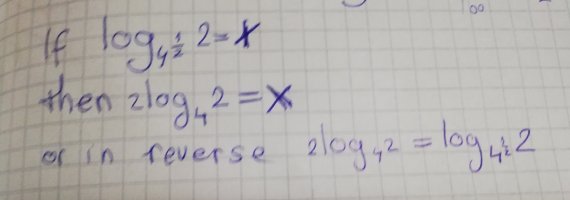 If log₄½ 2 = x
then 2log₄ 2 = x
or in reverse 2log₄2 = log₄½ 2